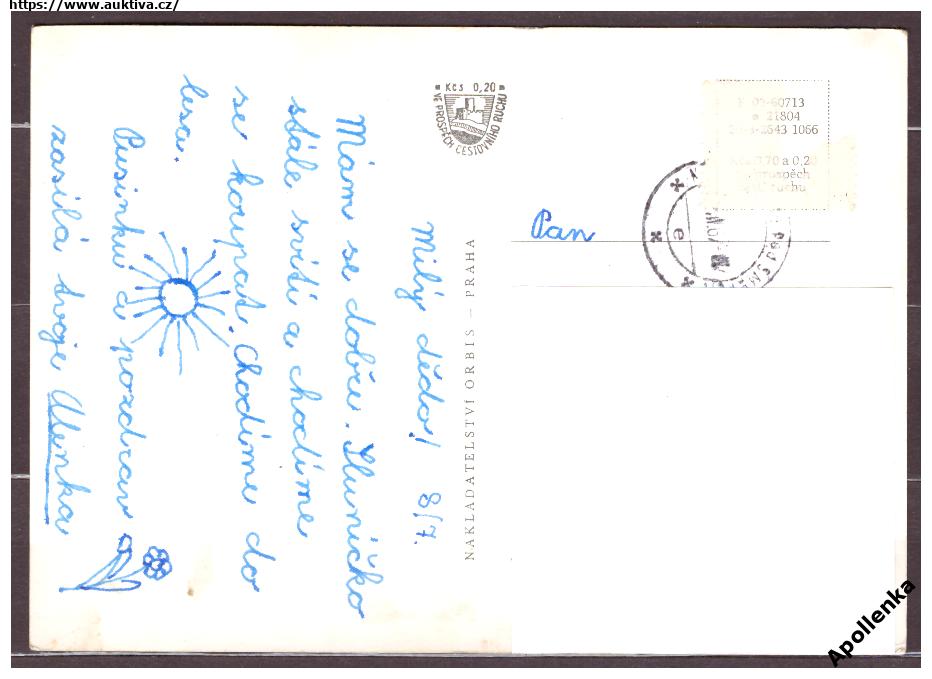 https://www.auktiva.cz/
Kčs 0,20
VE PROSPĚCH CESTOVNÍHO RUCHU
Milý dědo! 8/7.
Mám se dobře. Sluníčko
stále svítí a chodíme
se koupat. Chodíme do
lesa.
Pusinku a pozdrav
zasílá tvoje Alenka
NAKLADATELSTVÍ ORBIS – PRAHA
Pan
60713
21804
2643 1066
Kčs 0,70 a 0,20
prospěch
ruchu
e
Apollenka